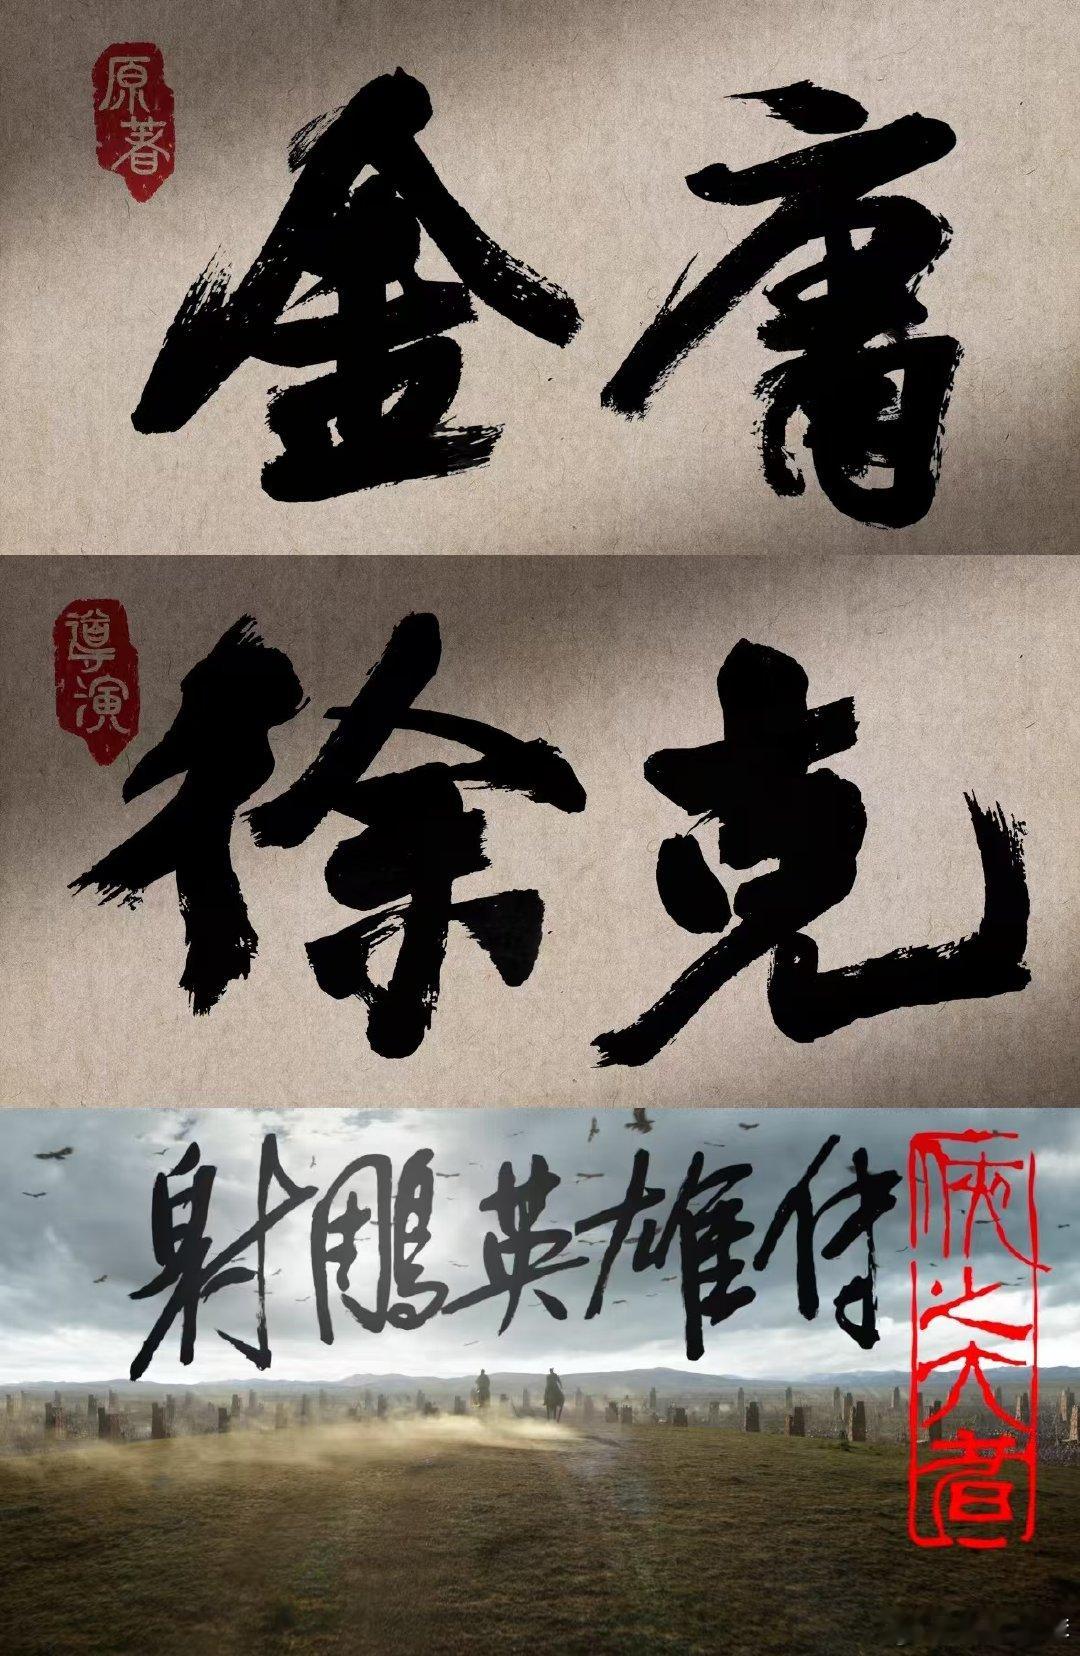 原著
金庸
導演
徐克
射鵰英雄传
俠之大者